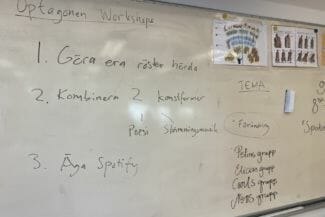 Optagonen Workshops
1. Göra era röster hörda
2. Kombinera 2 konstformer
Poesi Stämningsmusik
3. Äga Spotify
TEMA
Förändring
Petrus grupp
Elicas grupp
Carls grupp
Noas grupp